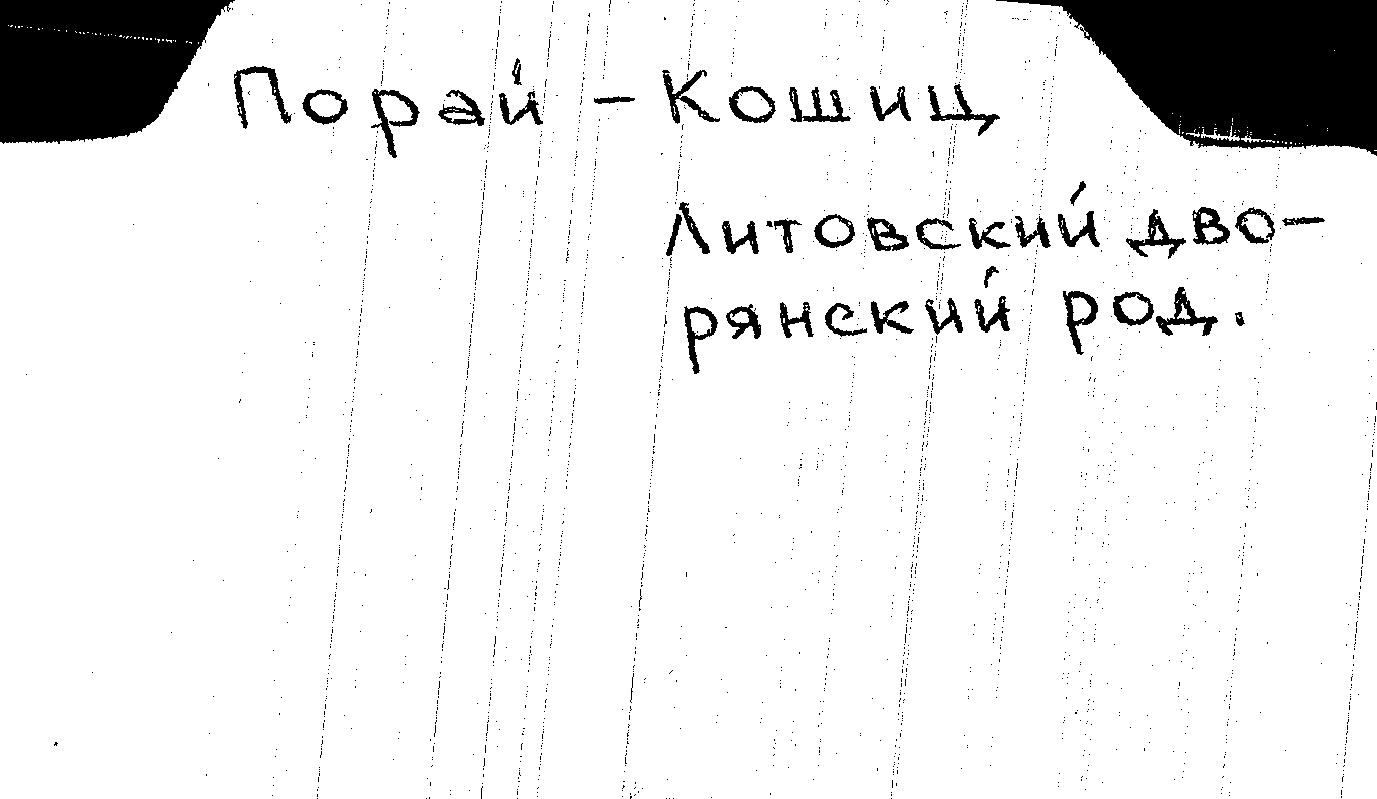 Порай - Кошиц
Литовский дво-
рянский род.